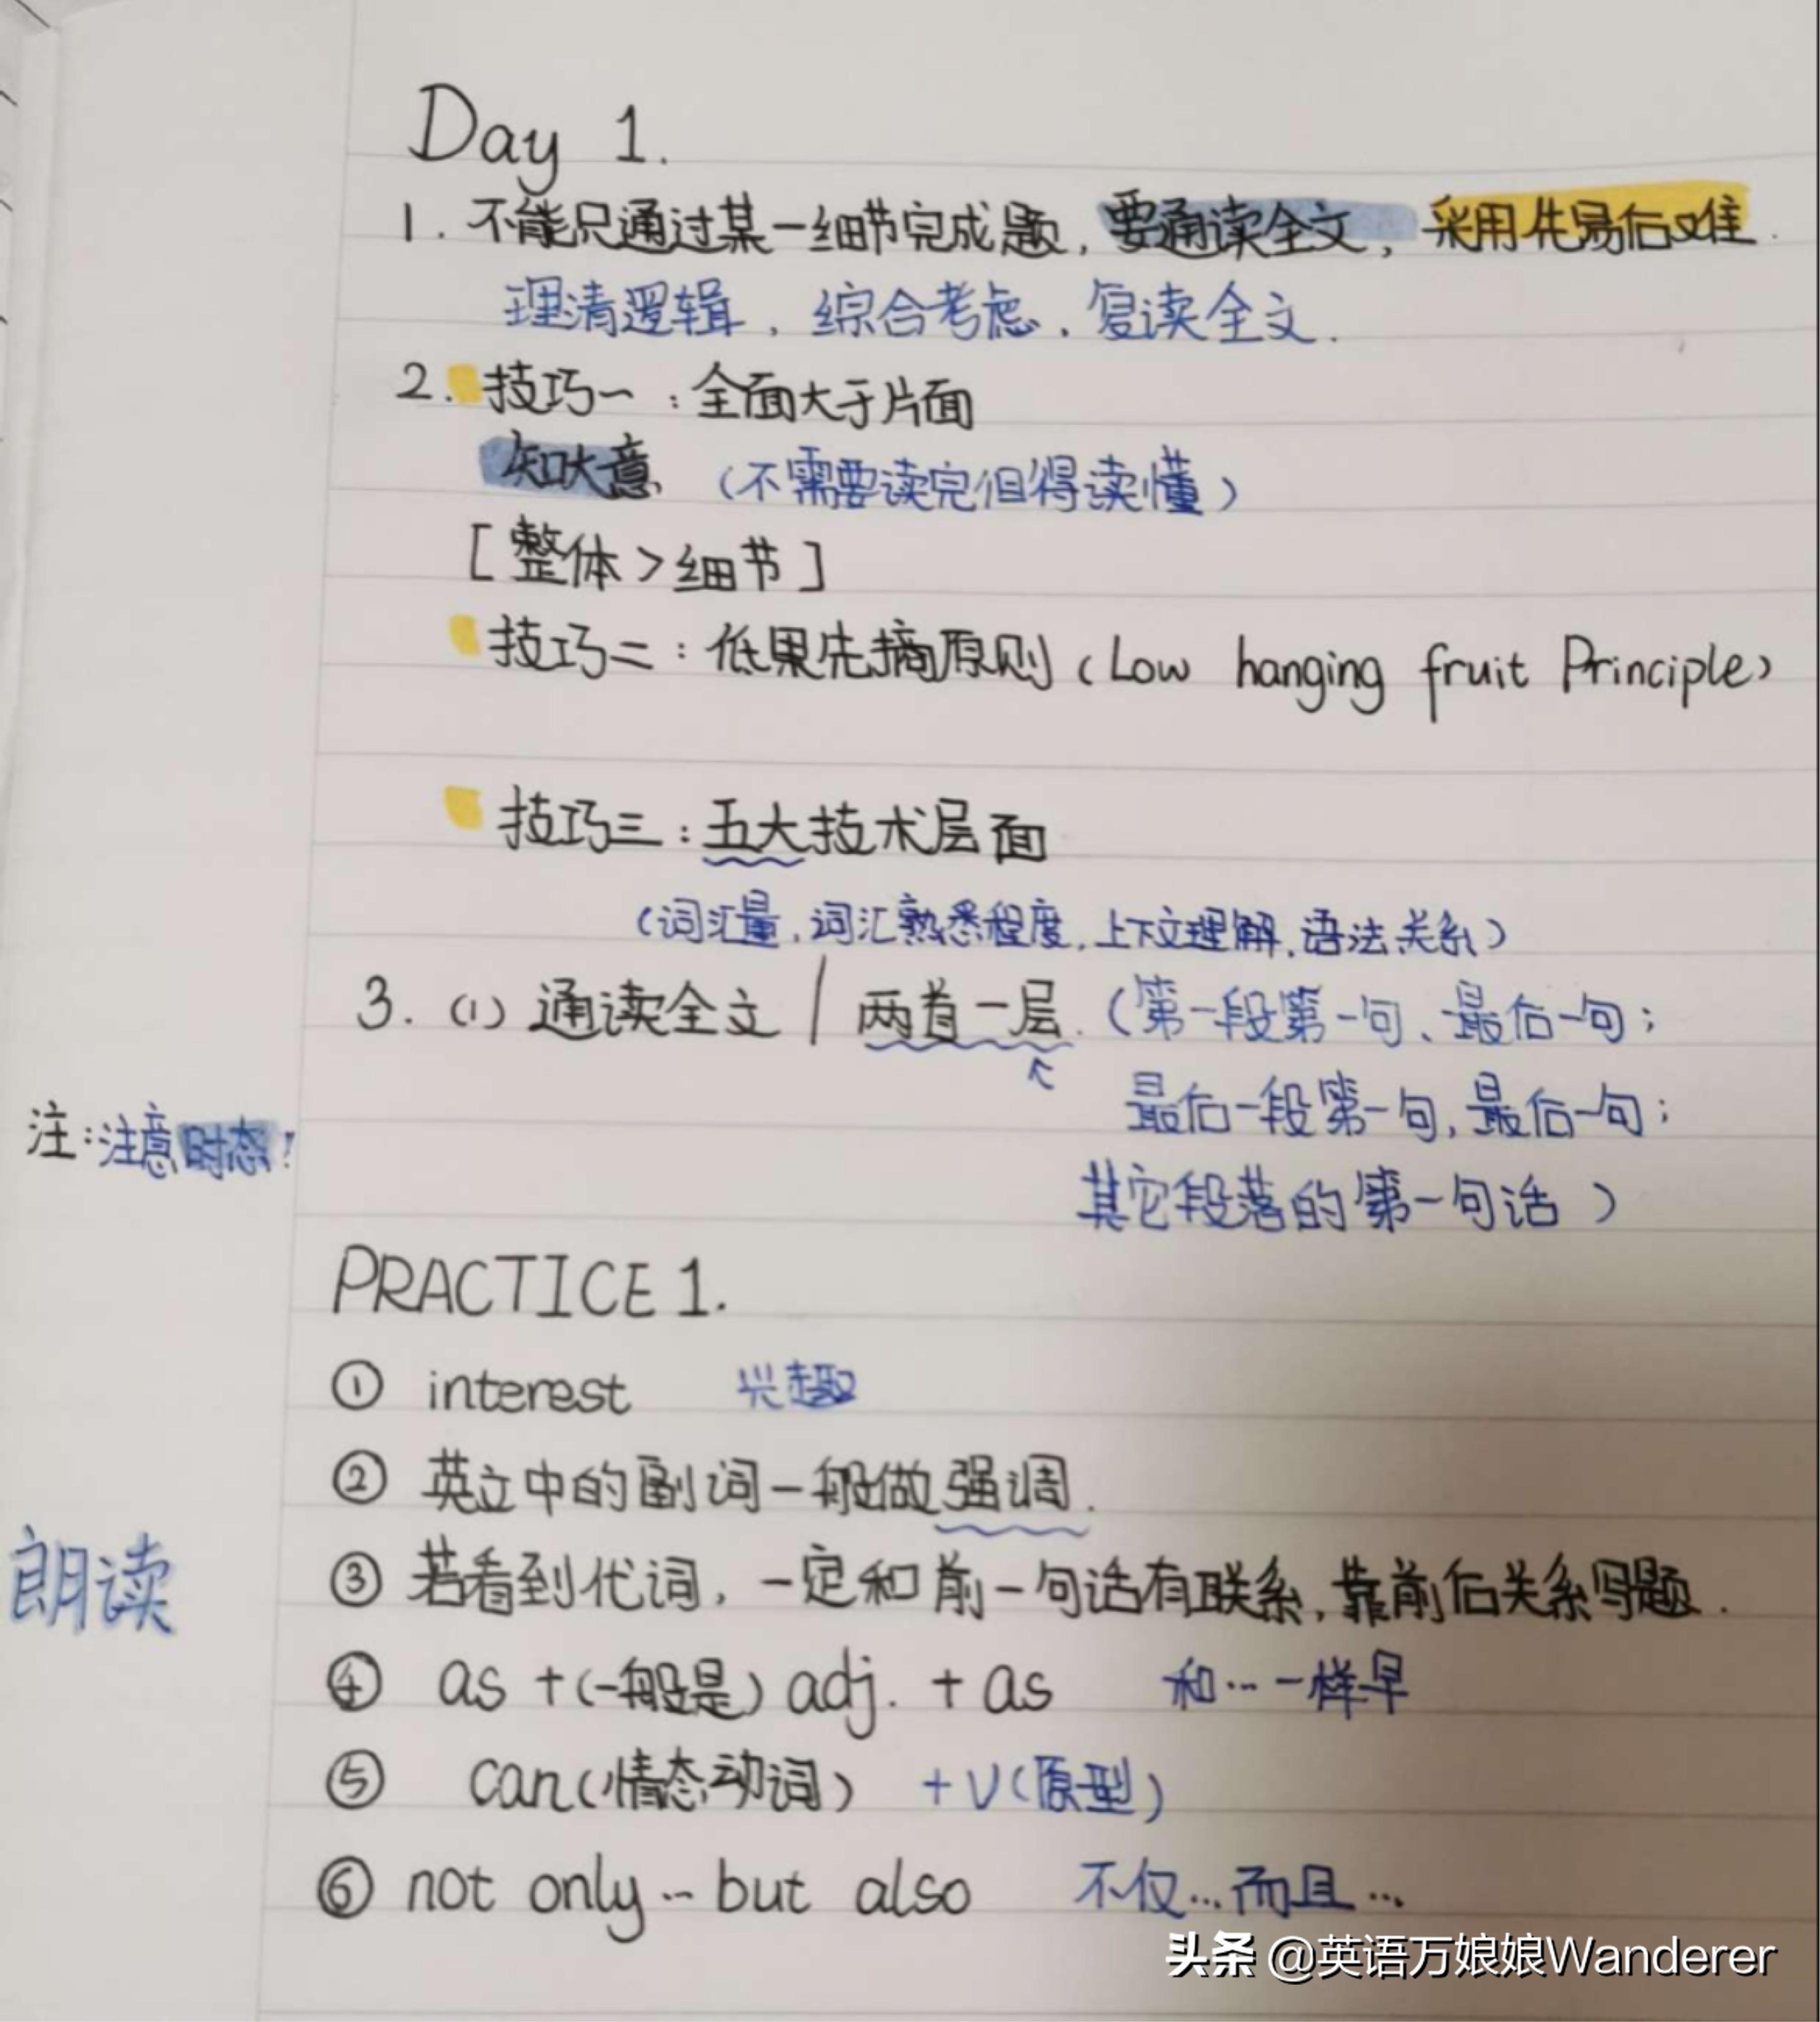 Day 1.
1. 不能只通过某一细节完成题，要通读全文，采用先易后难.
理清逻辑，综合考虑，复读全文.
2. 技巧一：全面大于片面
知大意 （不需要读完但得读懂）
[整体>细节]
技巧二：低果先摘原则（Low hanging fruit Principle）
技巧三：五大技术层面
（词汇量，词汇熟悉程度，上下文理解，语法关系）
3. (1) 通读全文 / 两首一层.（第一段第一句、最后一句；
最后一段第一句，最后一句；
注：注意时态！
其它段落的第一句话）
PRACTICE 1.
① interest 兴趣
② 英文中的副词一般做强调.
朗读
③ 若看到代词，一定和前一句话有联系，靠前后关系写题.
④ as +(一般是) adj. + as 和…一样早
⑤ can(情态动词) +V(原型)
⑥ not only … but also 不仅…而且…
头条 @英语万娘娘Wanderer